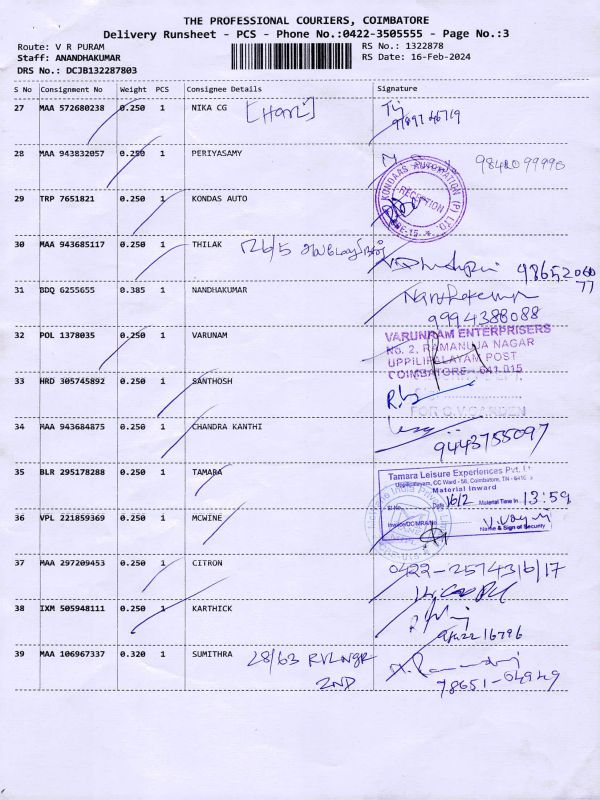 THE PROFESSIONAL COURIERS, COIMBATORE
Delivery Runsheet - PCS - Phone No.:0422-3505555 - Page No.:3
Route: V R PURAM
RS No.: 1322878
Staff: ANANDHAKUMAR
RS Date: 16-Feb-2024
DRS No.: DCJB132287803
S No Consignment No Weight PCS Consignee Details Signature
27 MAA 572680238 0.250 1 NIKA CG
28 MAA 943832057 0.250 1 PERIYASAMY
29 TRP 7651821 0.250 1 KONDAS AUTO
KONDAAS AUTOMATION (P) LTD.
RECEPTION
30 MAA 943685117 0.250 1 THILAK 126/5
98652060
77
31 BDQ 6255655 0.385 1 NANDHAKUMAR Nandhakumar
9994388088
32 POL 1378035 0.250 1 VARUNAM
VARUNRAM ENTERPRISERS
No. 2, RAMANUJA NAGAR
UPPILIPALAYAM POST
COIMBATORE - 641 015
33 HRD 305745892 0.250 1 SANTHOSH
34 MAA 943684875 0.250 1 CHANDRA KANTHI
9443755097
35 BLR 295178288 0.250 1 TAMARA
Tamara Leisure Experiences Pvt. Lt
Uppilipalayam, CC Ward - 58, Coimbatore, TN - 6410
Material Inward
Sl No. Date 16/2 Material Time In 13:59
Invoice/DC/MRA/No
Name & Sign of Security
36 VPL 221859369 0.250 1 MCWINE
37 MAA 297209453 0.250 1 CITRON 0422-2574316/17
38 IXM 505948111 0.250 1 KARTHICK
39 MAA 106967337 0.320 1 SUMITHRA 28/63 RVLNGR
2ND
78651-04949